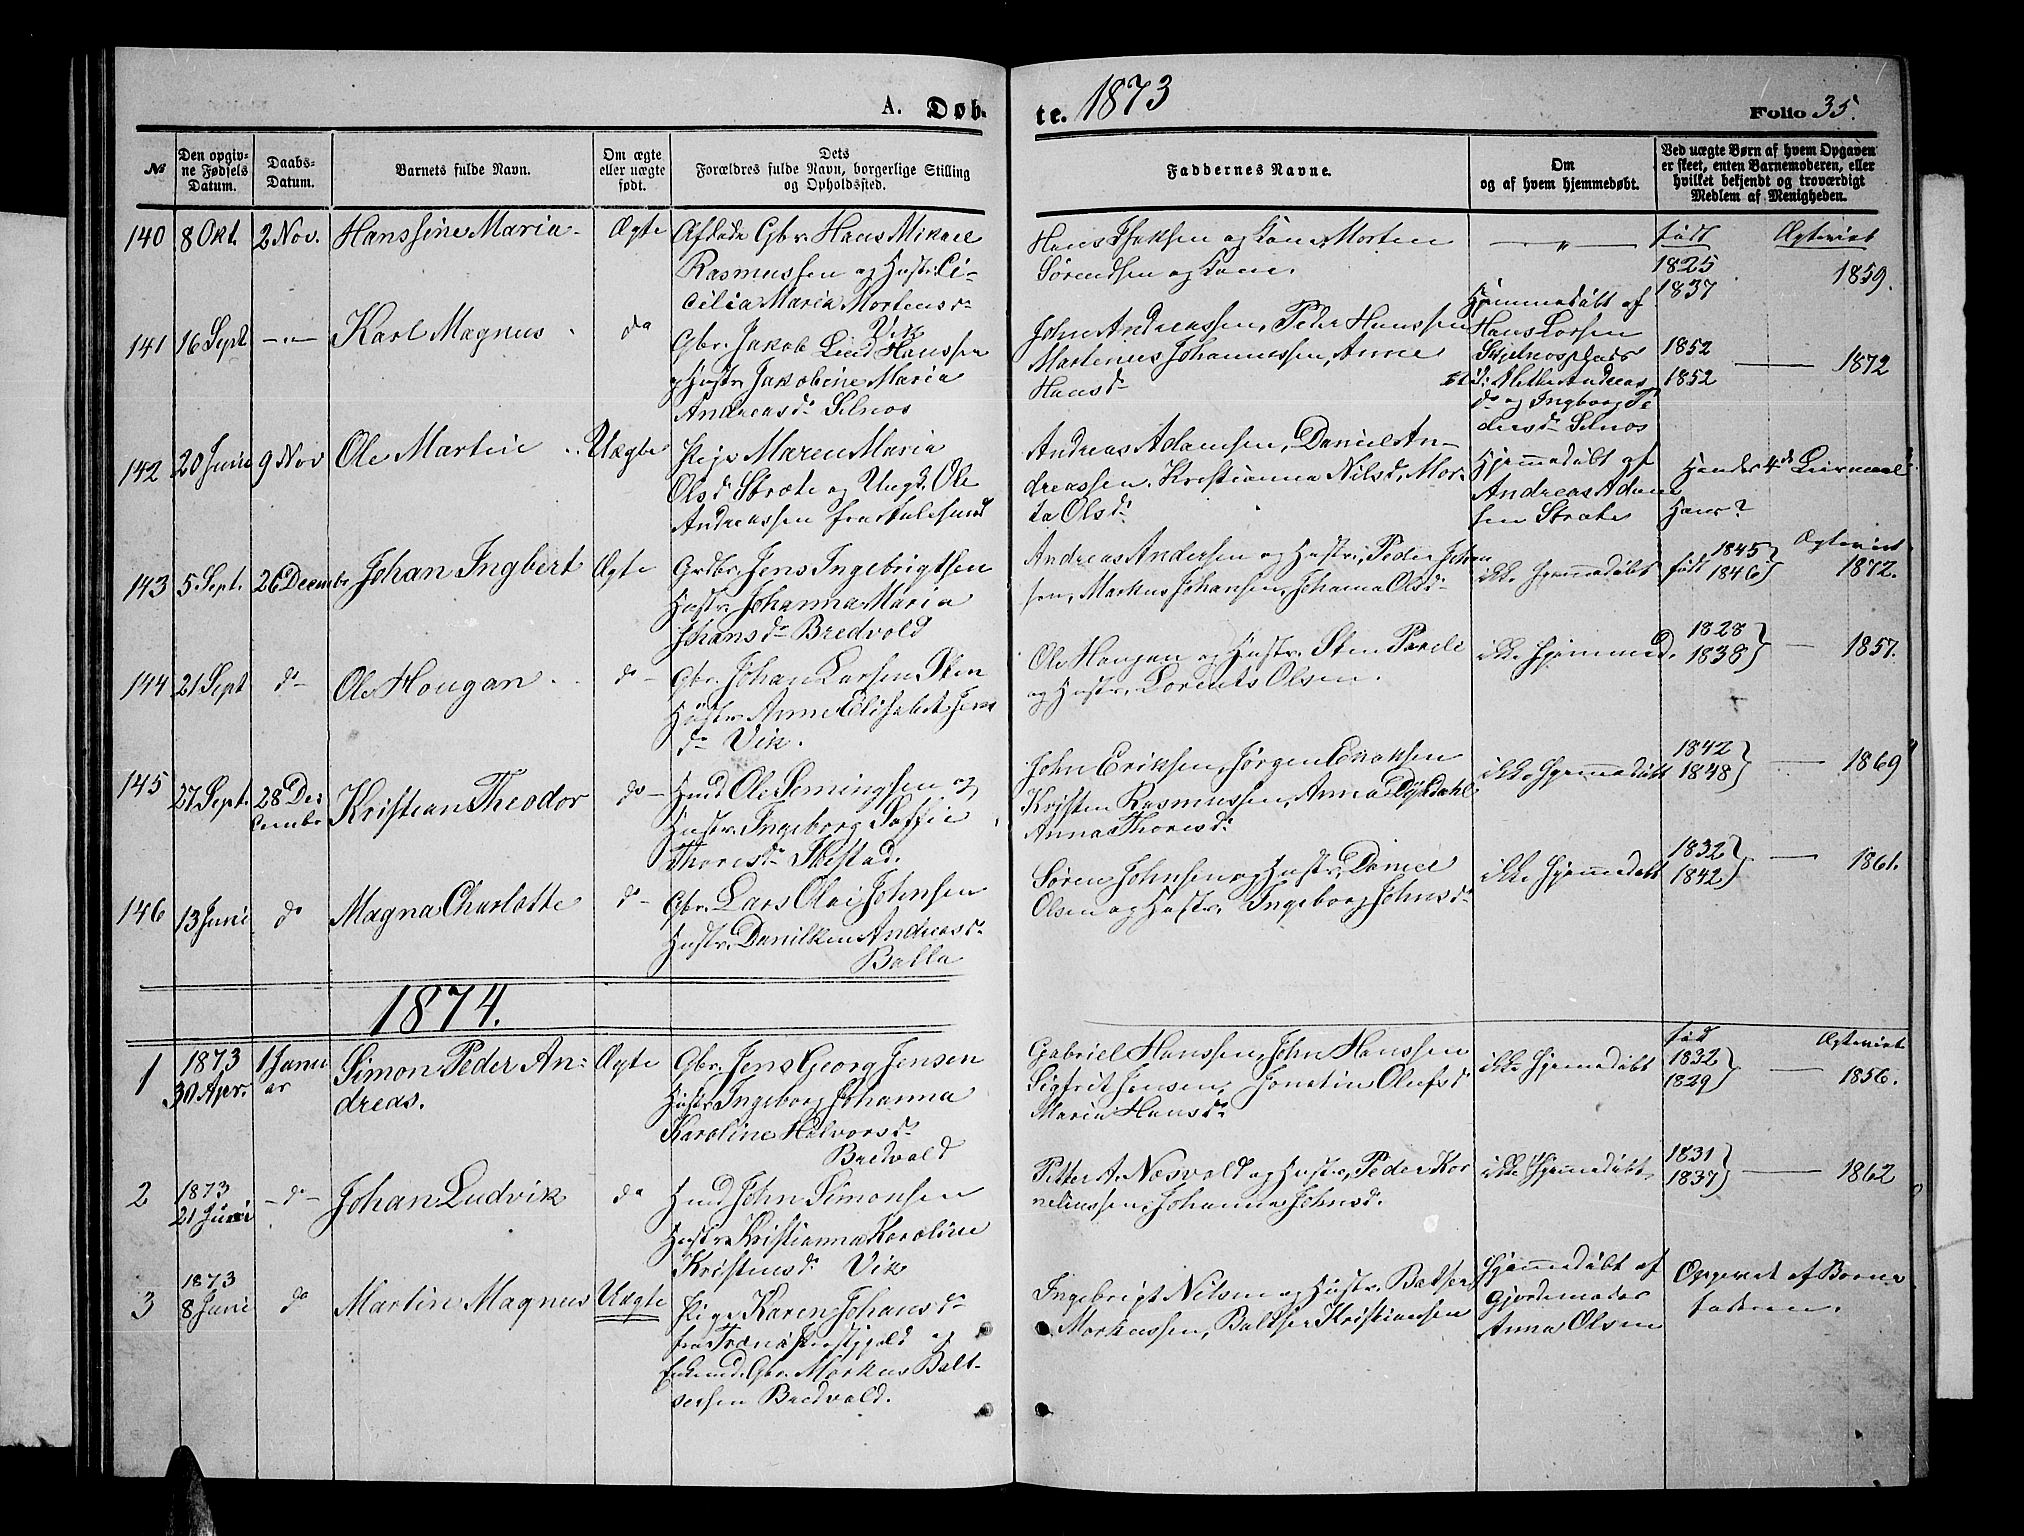 A. Døb-
te. 1873
Folio 35.
№
Den opgiv-
ne Fødsels
Datum.
Daabs-
Datum.
Barnets fulde Navn.
Om ægte
eller uægte
født.
Dets
Forældres fulde Navn, borgerlige Stilling
og Opholdssted.
Faddernes Navne.
Om
og af hvem hjemmedøbt.
Ved uægte Børn af hvem Opgaven
er skeet, enten Barnemoderen, eller
hvilket bekjendt og troværdigt
Medlem af Menigheden.
140 8 Okt. 2 Nov. Hanssine Maria Ægte
Afdøde Gbr. Hans Mikael
Rasmussen og Hustr. Ci-
cilia Maria Mortensd.
Vik
Hans Isaksen og Kone, Morten
Sørendsen og Kone.
— " —
født
1825
1837
Ægteviet
1859.
141 16 Sept —"— Karl Magnus do
Gbr. Jakob Lind Hanssen
og Hustr. Jakobine Maria
Andreasd. Selnos
John Andreassen, Peder Hanssen
Martinus Johannessen, Anne
Hansd
Hjemmedøbt af
Hans Larsen
Selnosplads
Mette Andreas
d. og Ingborg Pe
dersd. Selnos
1852
1852
— 1872
142 20 Juni 9 Nov Ole Martin Uægte
Pige Maren Maria
Olsd. Strøte og Ungk. Ole
Andreassen fra
Andreas Adamsen, Daniel An-
dreassen, Kristianna Nilsd, Mar-
ta Olsd.
Hjemmedøbt af
Andreas Adam
sen Strøte
Hendes 4de Leiermaal
Hans?
143 5 Sept. 26 Decembr Johan Ingbert Ægte
Grdbr. Jens Ingebrigtsen
Hustr. Johanna Maria
Johansd. Bredvold
Andreas Andersen og Hustr., Peder Johan
sen, Markus Johansen, Johanna Olsd.
ikke hjemmedøbt
født 1845
1846
Ægteviet
1872.
144 21 Sept do Ole Hougan do
Gbr. Johan Larsen Sten
Hustr. Anne Elisabet Jens
d. Vik.
Ole Hougan og Hustr. Sten Parele
og Hustr. Lorents Olsen.
ikke hjemmed.
1828
1838
— 1857.
145 27 Sept. 28 De
cembr Kristian Theodor do
Husd Ole Semingsen og
Hustr. Ingeborg Soffie
Thoresd.
John Eriksen, Jørgen Enoksen
Kristen Rasmussen, Anna Dybdahl
Anna Thoresd.
ikke hjemmedøbt
1842
1848
— 1869
146 13 Juni do Magna Charlotte do
Gbr. Lars Olai Johnsen
Hustr. Danilken Andreasd.
Balla
Søren Johnsen og Hustr., Daniel
Olsen og Hustr. Ingeborg Johnsd.
ikke hjemmedøbt
1832
1842
— 1861.
1874.
1 1873
30 Apr. 1 Janu
ar Simon Peder An-
dreas. Ægte
Gbr. Jens Georg Jensen
Hustr. Ingeborg Johanna
Karoline Halvorsd.
Bredvold
Gabriel Hanssen, John Hanssen
Sigfrit Jensen, Jonetin Olufsd
Maria Hansd.
ikke hjemmedøbt
fød
1832
1829
Ægteviet
— 1856.
2 1873
21 Juni —do— Johan Ludvik do
Husd John Simonsen
Hustr. Kristianna Karoline
Kristensd. Vik
Petter A. Nesvold og Hustr., Peder Kor
neliussen, Johanna Johnsd.
ikke hjemmedøbt
1831
1837
— 1862
3 1873
8 Juni do Martin Magnus Uægte
Pige Karen Johansd.
fra Træna Præstegjeld og
Enkemd. Gbr. Markus Balt-
sersen Bredvold.
Ingebrigt Nilsen og Hustr. Baltser
Markussen, Baltser Kristiansen
Hjemmedøbt af
Gjordemoder
Anna Olsen
Opgivet af Barne
faderen.